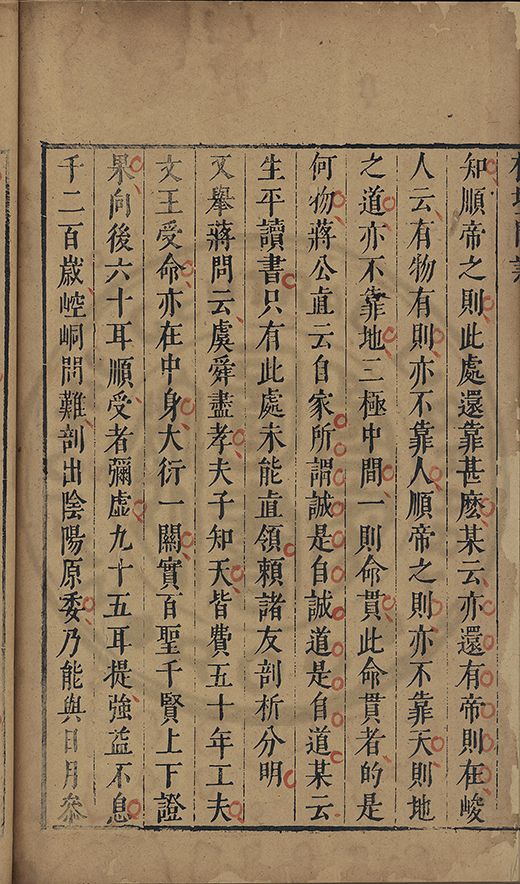 榕壇問業
知順帝之則此處還靠甚麽某云亦還有帝則在峻
人云有物有則亦不靠人順帝之則亦不靠天則地
之道亦不靠地三極中間一則命貫此命貫者的是
何物蔣公直云自家所謂誠是自誠道是自道某云
生平讀書只有此處未能直領賴諸友剖析分明
又舉蔣問云虞舜盡孝夫子知天皆費五十年工夫
文王受命亦在中身大衍一關實百聖千賢上下證
果向後六十耳順受者彌虛九十五耳提強益不息
千二百歲崆峒問難剖出陰陽原委乃能與日月參